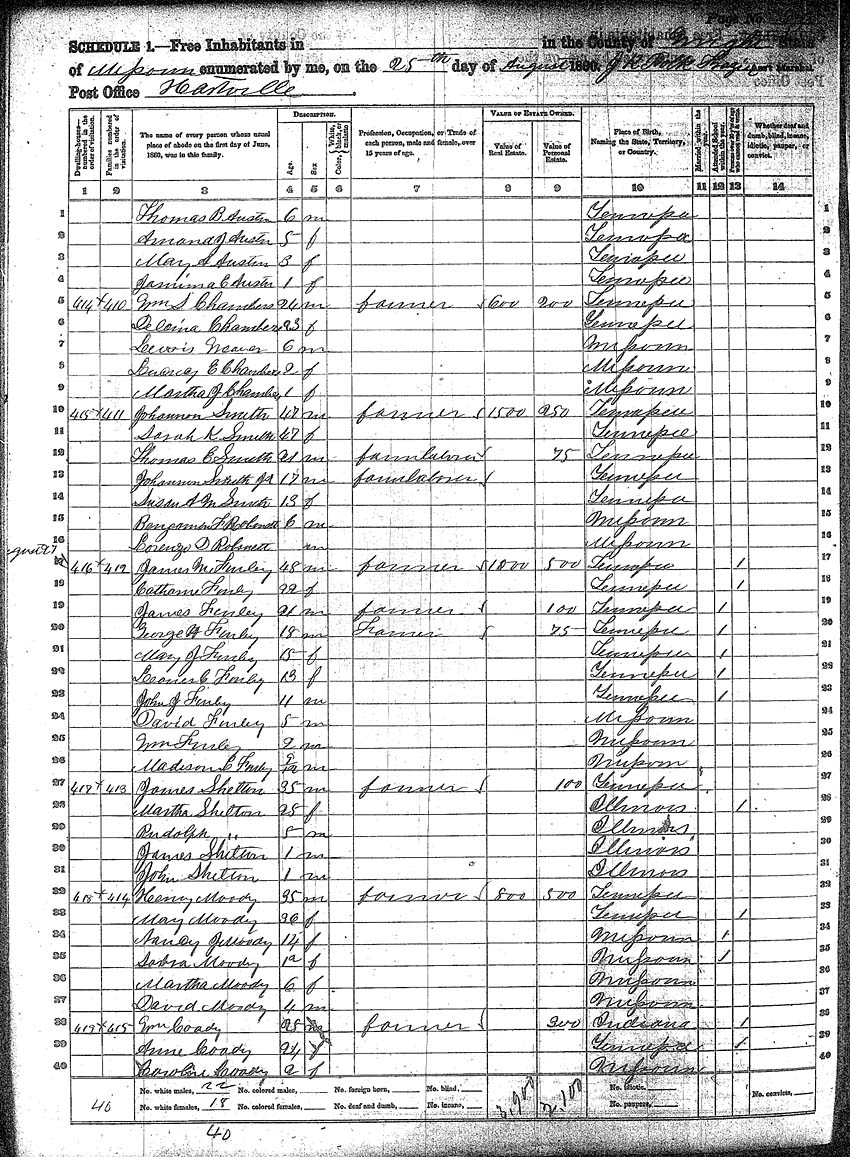 Page No.
SCHEDULE 1.—Free Inhabitants in in the County of Wright State
of Missouri enumerated by me, on the 25th day of August 1860.
Post Office Hartville
DESCRIPTION.
VALUE OF ESTATE OWNED.
Dwelling-houses—numbered in the order of visitation.
Families numbered in the order of visitation.
The name of every person whose usual place of abode on the first day of June, 1860, was in this family.
Age.
Sex
Color, White, black, or mulatto
Profession, Occupation, or Trade of each person, male and female, over 15 years of age.
Value of Real Estate.
Value of Personal Estate.
Place of Birth, Naming the State, Territory, or Country.
Married within the year.
Attended School within the year.
Whether deaf and dumb, blind, insane, idiotic, pauper, or convict.
1 2 3 4 5 6 7 8 9 10 11 12 13 14
1 Thomas B Austin 6 m Tennessee 1
2 Amanda J Austin 5 f Tennessee 2
3 Mary A Austin 3 f Tennessee 3
4 Austin 1 f Tennessee 4
5 414 410 Wm S Chambers 24 m farmer 600 200 Tennessee 5
6 Chambers 23 f Tennessee 6
7 Lewis Weaver 6 m Missouri 7
8 E Chambers 2 f Missouri 8
9 Martha J Chambers 1 f Missouri 9
10 415 411 Johannon Smith 47 m farmer 1500 250 Tennessee 10
11 Sarah K Smith 47 f Tennessee 11
12 Thomas E Smith 21 m farm laborer 75 Tennessee 12
13 Johannon Smith Jr 17 m farm laborer Tennessee 13
14 Susan A M Smith 13 f Tennessee 14
15 Benjamin F 6 m Missouri 15
16 Lorenzo D m Missouri 16
17 416 412 James M Finley 48 m farmer 1000 500 Tennessee 1 17
18 Catharine Finley 22 f Tennessee 1 18
19 James Finley 21 m farmer 100 Tennessee 1 19
20 George W Finley 18 m Farmer 75 Tennessee 1 20
21 Mary J Finley 15 f Tennessee 1 21
22 C Finley 13 f Tennessee 1 22
23 John J Finley 11 m Tennessee 1 23
24 David Finley 5 m Missouri 24
25 Wm Finley 2 m Missouri 25
26 Madison C Finley m Missouri 26
27 417 413 James Shelton 35 m farmer 100 Tennessee 27
28 Martha Shelton 25 f Illinois 1 28
29 Rudolph " 5 m Illinois 29
30 James Shelton 1 m Illinois 30
31 John Shelton 1 m Illinois 31
32 418 414 Henry Moody 35 m farmer 800 500 Tennessee 32
33 Mary Moody 36 f Tennessee 1 33
34 Nancy J Moody 14 f Missouri 1 34
35 Moody 12 f Missouri 1 35
36 Martha Moody 6 f Missouri 36
37 David Moody 4 m Missouri 37
38 419 415 Wm Coady 25 m farmer 300 Indiana 1 38
39 Anne Coady 24 f Tennessee 1 39
40 Caroline Coady 2 f Missouri 40
No. white males, 22 No. colored males, No. foreign born, No. blind, No. idiotic,
No. white females, 18 No. colored females, No. deaf and dumb, No. insane, No. paupers, No. convicts,
40
40